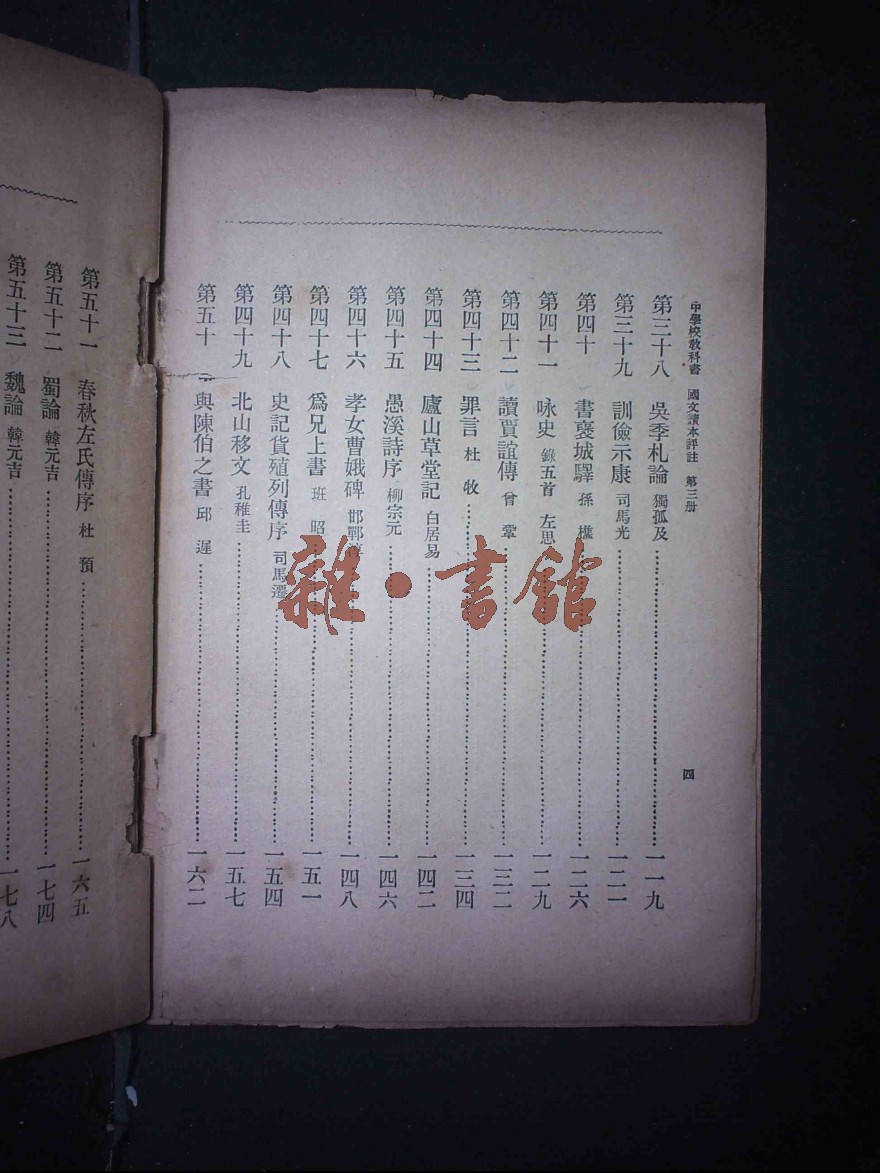 中學校教科書 國文讀本評註 第三册
四
第三十八 吳季札論 獨孤及 一一九
第三十九 訓儉示康 司馬光 一二一
第四十 書襃城驛 孫樵 一二六
第四十一 咏史 錄五首 左思 一二九
第四十二 讀賈誼傳 曾鞏 一三二
第四十三 罪言 杜牧 一三四
第四十四 廬山草堂記 白居易 一四二
第四十五 愚溪詩序 柳宗元 一四六
第四十六 孝女曹娥碑 邯鄲淳 一四八
第四十七 爲兄上書 班昭 一五一
第四十八 史記貨殖列傳序 司馬遷 一五四
第四十九 北山移文 孔稚圭 一五七
第五十 與陳伯之書 邱遲 一六二
第五十一 春秋左氏傳序 杜預 一六五
第五十二 蜀論 韓元吉 一七四
第五十三 魏論 韓元吉 一七八
雜·書館